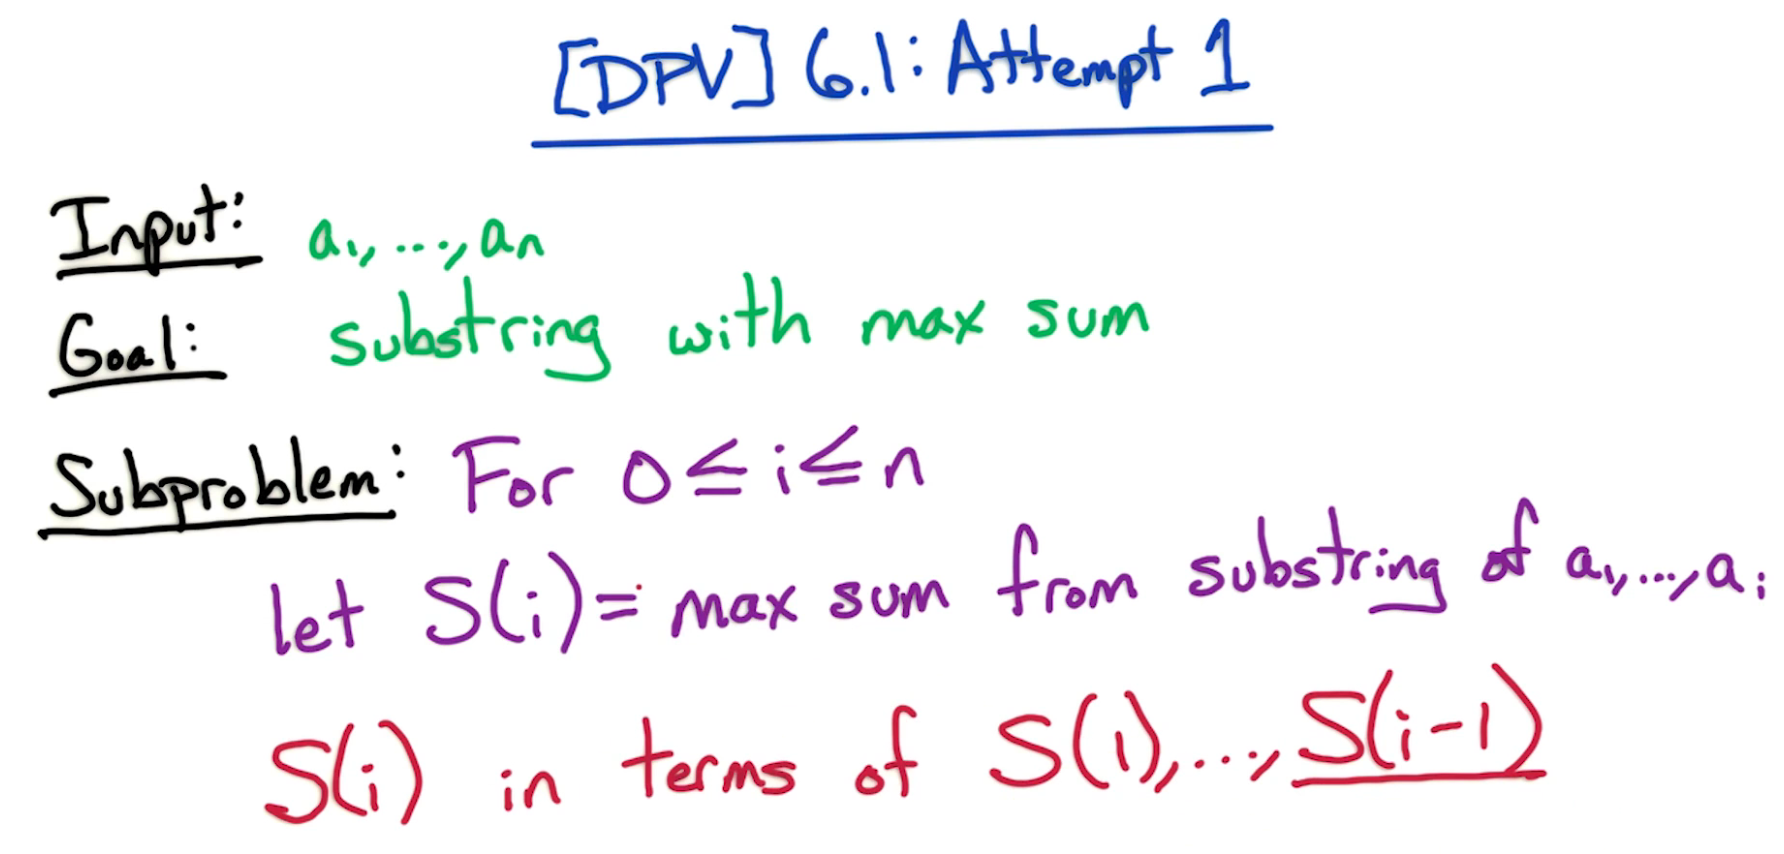 [DPV] 6.1: Attempt 1
Input: a₁, ..., aₙ
Goal: substring with max sum
Subproblem: For 0 ≤ i ≤ n
let S(i) = max sum from substring of a₁, ..., aᵢ
S(i) in terms of S(1), ..., S(i-1)